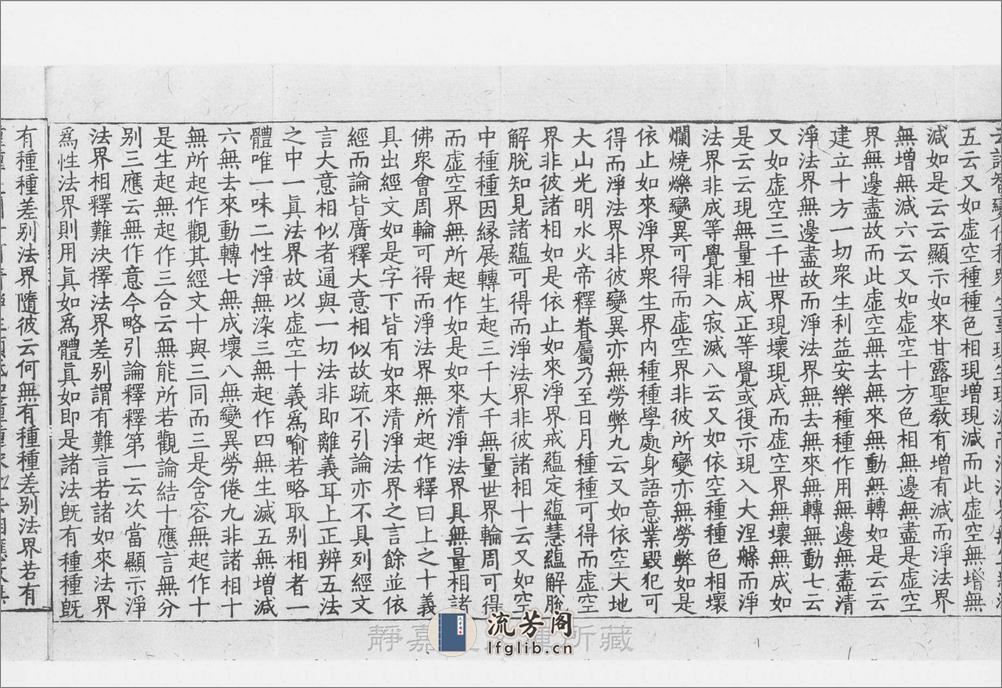 五云又如虛空種種色相現增現減而此虛空無增無
減如是云云顯示如來甘露聖敎有增有減而淨法界
無增無減六云又如虛空十方色相無邊無盡是虛空
界無邊盡故而此虛空無去無來無動無轉如是云云
建立十方一切衆生利益安樂種種作用無邊無盡清
淨法界無邊盡故而淨法界無去無來無轉無動七云
又如虛空三千世界現壞現成而虛空界無壞無成如
是云云現無量相成正等覺或復示現入大涅槃而淨
法界非成等覺非入寂滅八云又如依空種種色相壞
爛燒爍變異可得而虛空界非彼所變亦無勞弊如是
依止如來淨界衆生界內種種學處身語意業毀犯可
得而淨法界非彼變異亦無勞弊九云又如依空大地
大山光明水火帝釋眷屬乃至日月種種可得而虛空
界非彼諸相如是依止如來淨界戒蘊定蘊慧蘊解脫
解脫知見諸蘊可得而淨法界非彼諸相十云又如空
中種種因緣展轉生起三千大千無量世界輪周可得
而虛空界無所起作如是如來清淨法界具無量相諸
佛衆會周輪可得而淨法界無所起作釋曰上之十義
具出經文如是字下皆有如來清淨法界之言餘並依
經而論皆廣釋大意相似故疏不引論亦不具列經文
言大意相似者通與一切法非即離義耳上正辨五法
之中一眞法界故以虛空十義爲喻若略取別相者一
體唯一味二性淨無染三無起作四無生滅五無增減
六無去來動轉七無成壞八無變異勞倦九非諸相十
無所起作觀其經文十與三同而三是含容無起作十
是生起無起作三合云無能所若觀論結十應言無分
別三應云無作意今略引論釋釋第一云次當顯示淨
法界相釋難決擇法界差別謂有難言若諸如來法界
爲性法界則用眞如爲體眞如即是諸法旣有種種旣
有種種差別法界隨彼云何無有種種差別法界若有
靜嘉
所藏
流芳阁
lfglib.cn